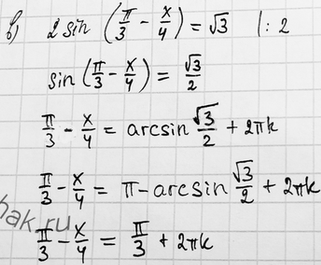 в) 2 sin (π/3 - x/4) = √3 |: 2
sin (π/3 - x/4) = √3/2
π/3 - x/4 = arcsin √3/2 + 2πk
π/3 - x/4 = π - arcsin √3/2 + 2πk
hak.ru
π/3 - x/4 = π/3 + 2πk